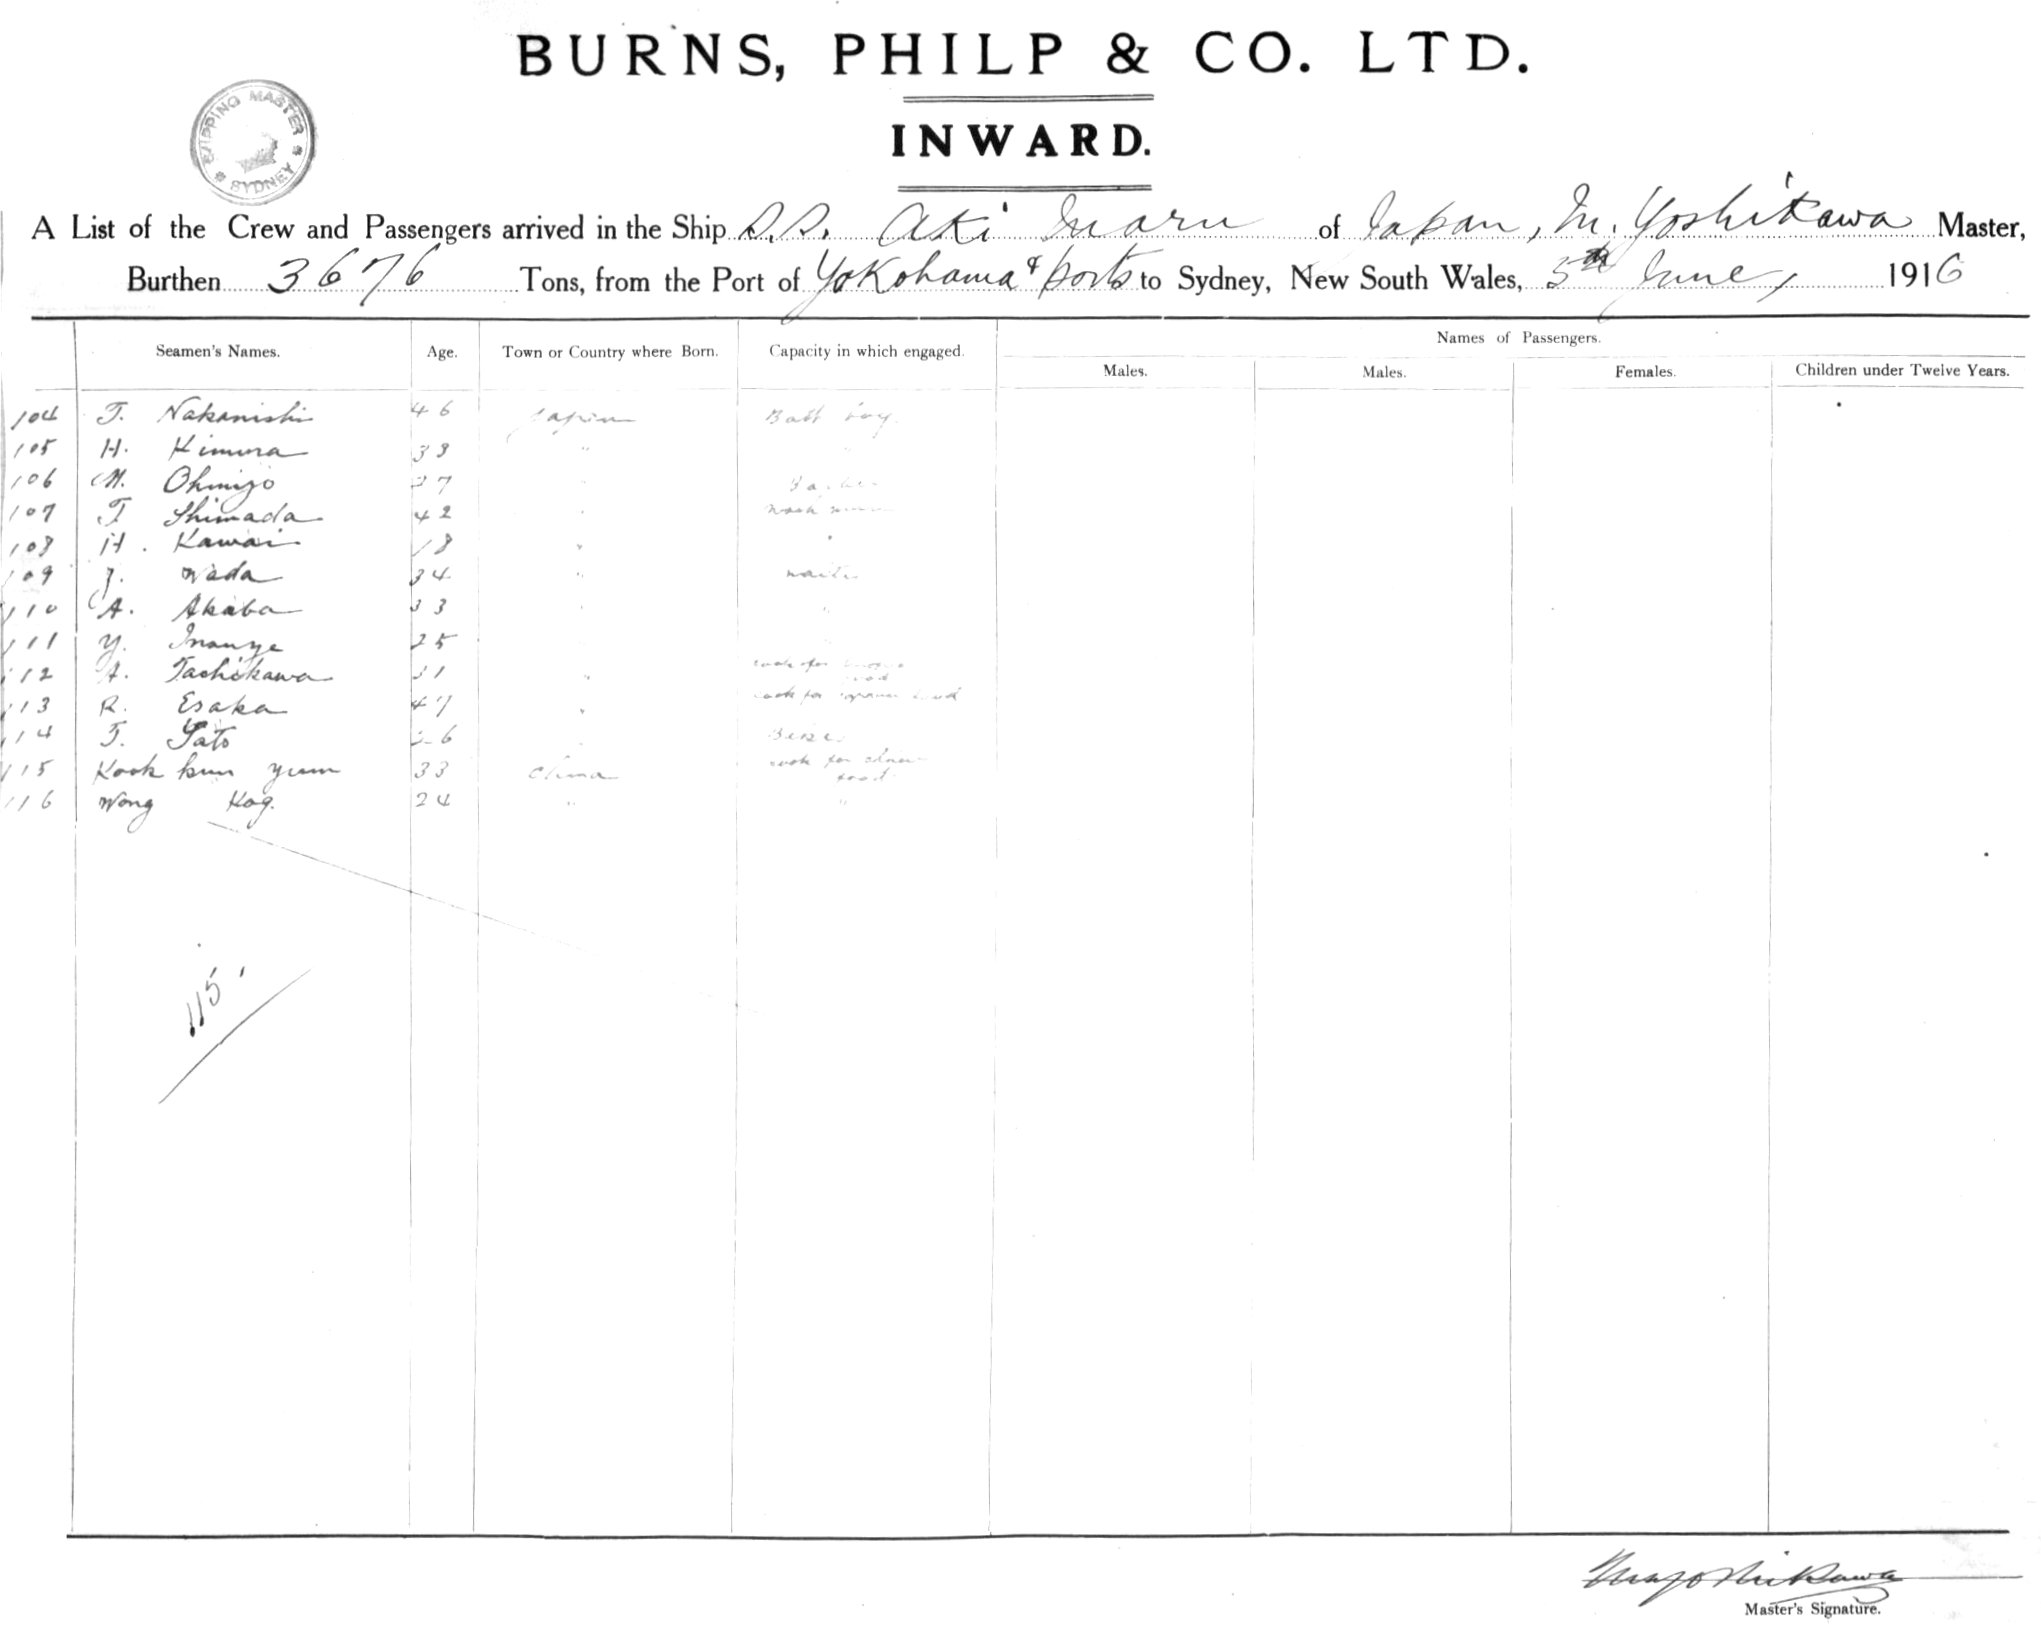 BURNS, PHILP & CO. LTD.
SHIPPING MASTER SYDNEY
INWARD.
A List of the Crew and Passengers arrived in the Ship S.S. Aki Maru of Japan, M. Yoshikawa Master,
Burthen 3676 Tons, from the Port of Yokohama & ports to Sydney, New South Wales, 5th June, 1916
Names of Passengers.
Seamen's Names. Age. Town or Country where Born. Capacity in which engaged.
Males. Males. Females. Children under Twelve Years.
104 T. Nakanishi 46 Japan Bath boy
105 H. Kimura 33 " "
106 M. 37 "
107 T Shimada 42 "
108 H. Kawai 18 " "
109 Wada 34 "
110 A. Akaba 33 " "
111 Y. Inouye 25 "
112 Tachikawa 31 " cook for food
113 R. Esaka 47 " cook for food
114 T. Sato 26 "
115 Kook kun yum 33 China cook for food
116 Wong 24 " "
115
M Yoshikawa
Master's Signature.